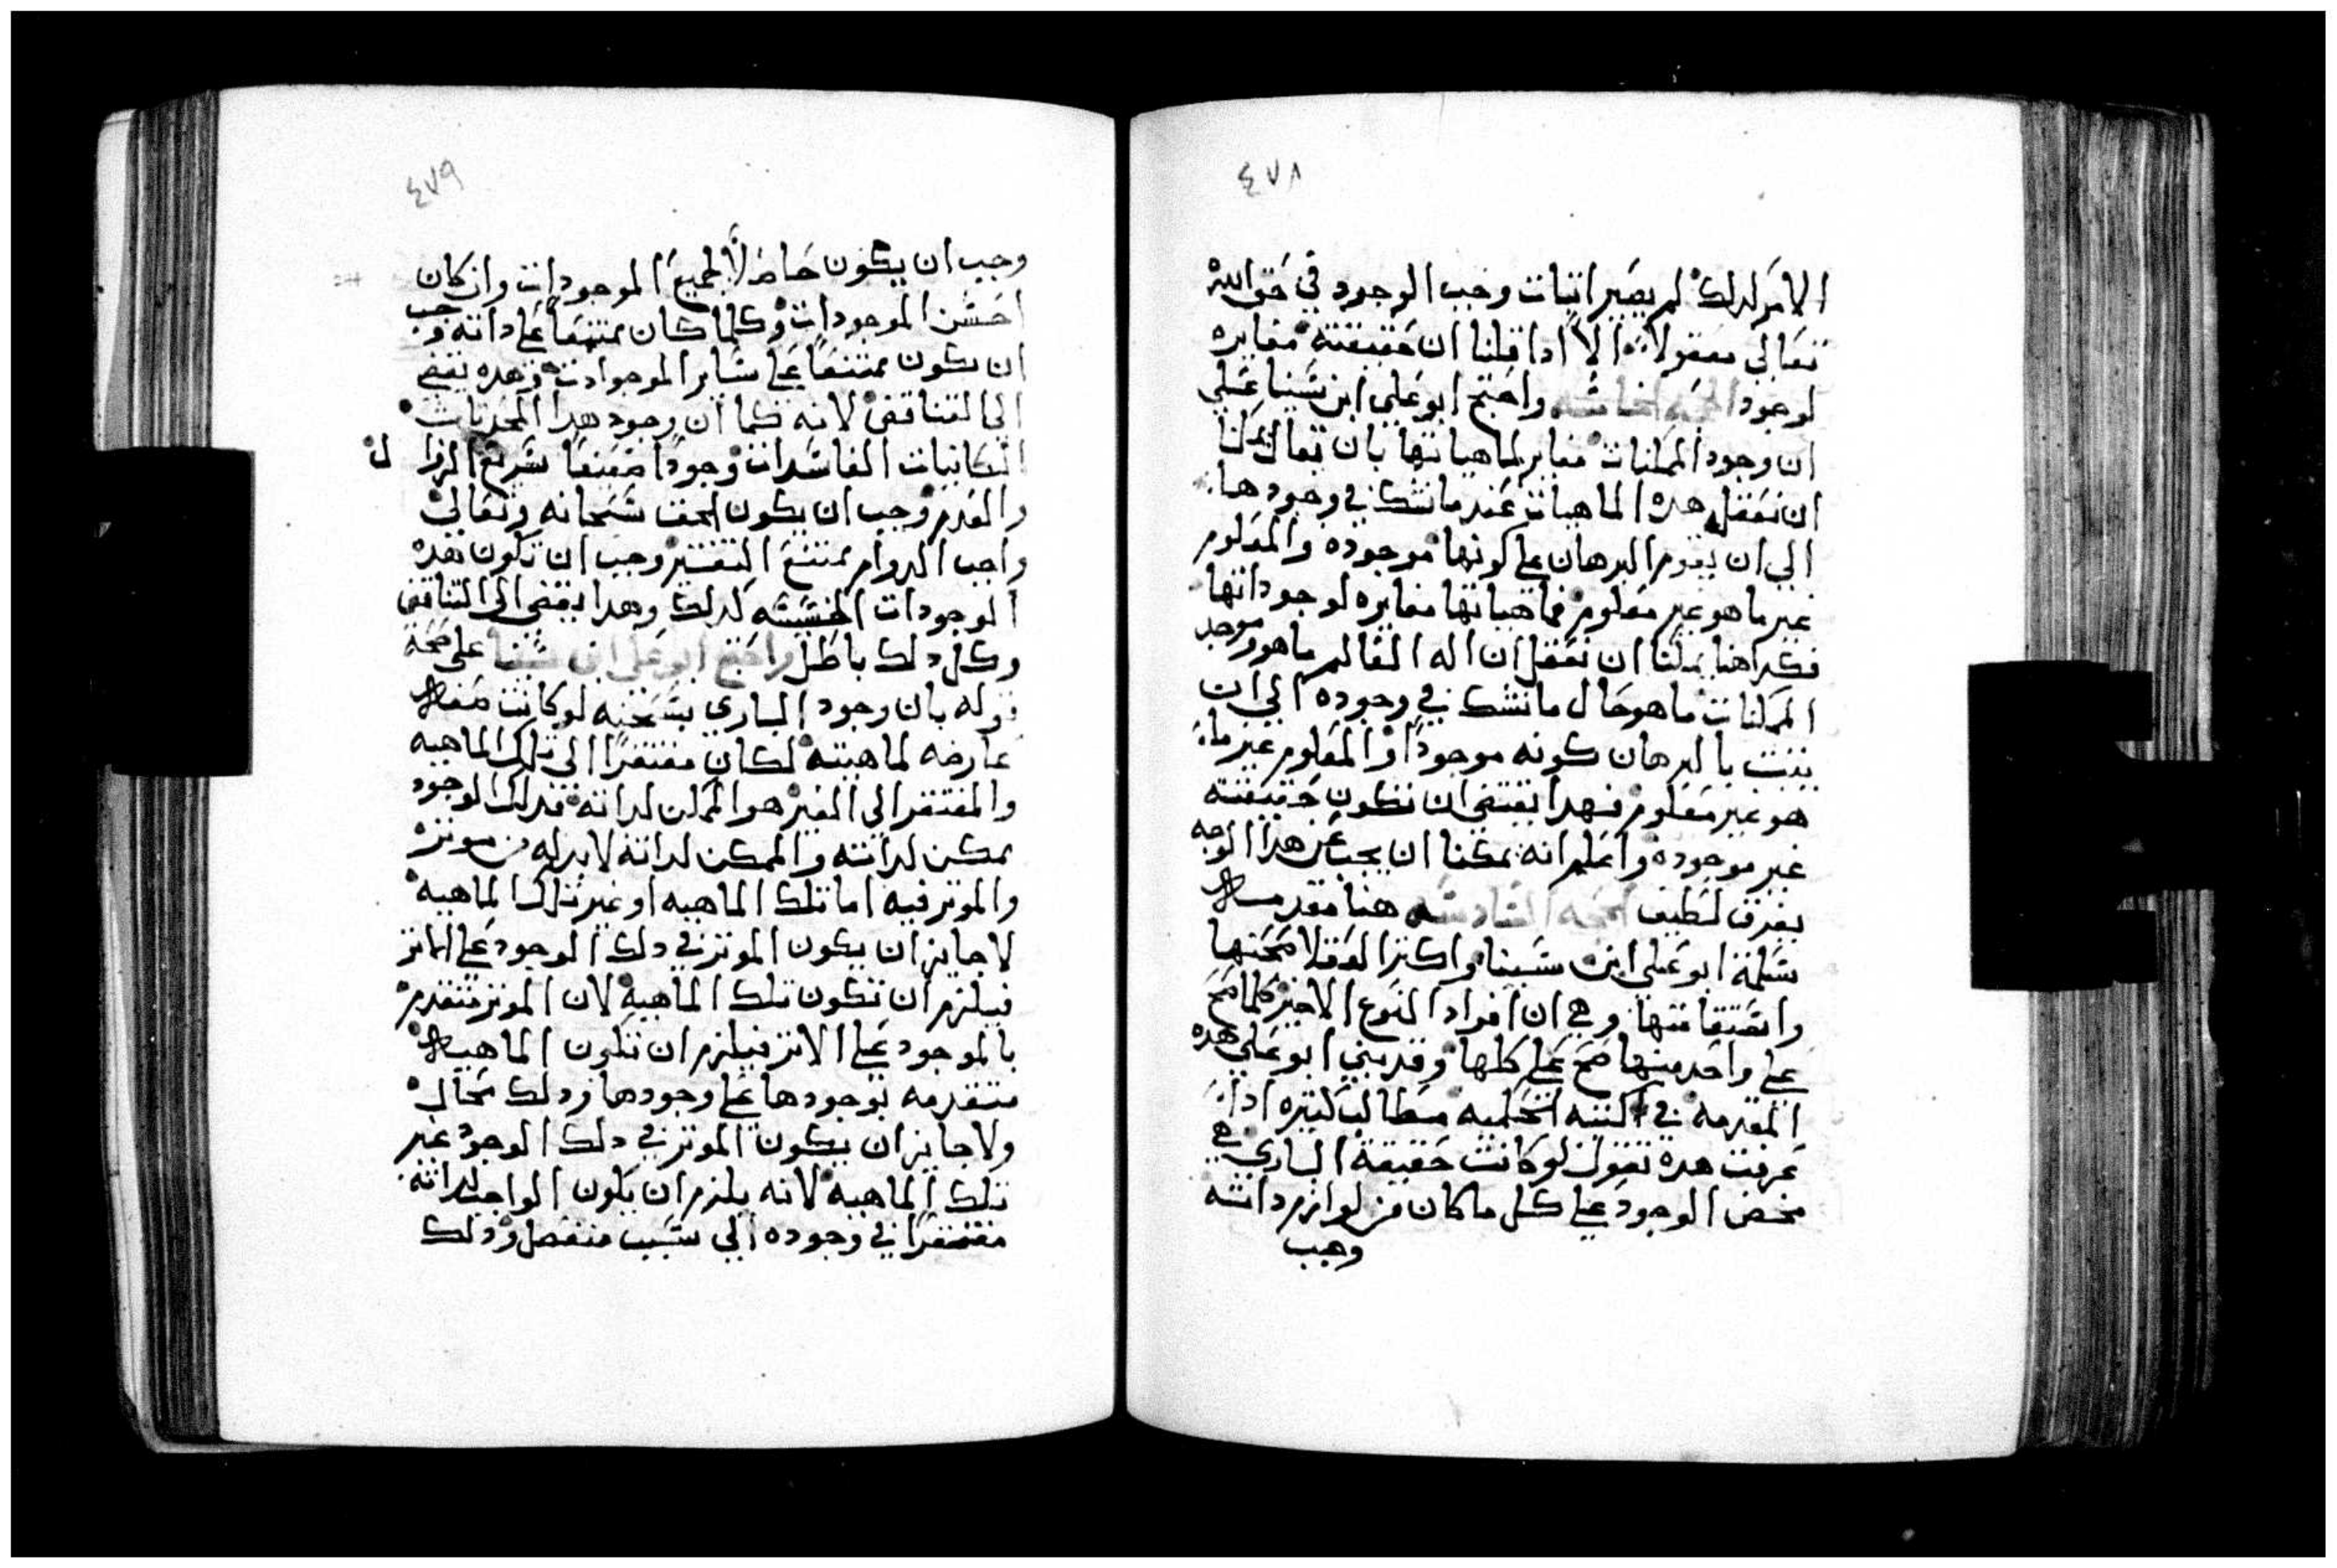 ٤٧٨
الامر لدلك لم يصير اتبات وجب الوجود في حق الله
تعالي معقولا الا ادا قلنا ان حقيقته مغايره
لوجود الحجه الخامسه واحتج ابو علي ابن سينا علي
ان وجود الممكنات مغاير لماهياتها بان يقال يمكنا
ان نعقل هده الماهيات عندما نشك في وجودها
الي ان يقوم البرهان علي كونها موجوده والمعلوم
غير ما هو غير معلوم فماهياتها مغايره لوجوداتها
فكدا هنا يمكنا ان نعقل ان اله العالم ما هو وموجد
الممكنات ما هو حال ما نشك في وجوده الي ان
يتبت بالبرهان كونه موجودا والمعلوم غير ما
هو غير معلوم فهدا يقتضي ان تكون حقيقته
غير موجوده واعلم انه يمكنا ان يجيب عن هدا الوجه
بفرق لطيف الحجه السادسه هنا مقدمه
سلمة ابو علي ابن سينا واكتر العقلا صحتها
واستقامتها وهي ان افراد النوع الاخير كلما صح
علي واحد منها صح علي كلها وقد بني ابو علي هده
المقدمه في اكتبه الحكميه مطالب كتيره ادا
عرفت هده نقول لو كانت حقيقة الباري هي
محض الوجود علي كل ما كان من لوازم داته
وجب
٤٧٩
وجب ان يكون حاصلا لجميع الموجودات وان كان
اخس الموجودات وكلما كان ممتنعا علي داته وجب
ان يكون ممتنعا علي ساير الموجوادت وهده يفضي
الي التناقض لانه كما ان وجود هدا المحدتات
الكاينات الفاسدات وجودا ضعيفا سريع الزوال
والعدم وجب ان يكون الحق سبحانه وتعالي
واجب الدوام ممتنع التغيير وجب ان تكون هده
الوجودات الخسيسه كدلك وهدا يفضي الي التناقض
وكل دلك باطل واحتج ابو علي ابن سينا علي صحة
قوله بان وجود الباري بتسخته لو كانت صفه
عارضه لماهيته لكان مفتقرا الي تلك الماهيه
والمفتقر الي الغير هو الممكن لداته فدلك الوجود
ممكن لداته والممكن لداته لا بد له من موتر
والموتر فيه اما تلك الماهيه او غير تلك الماهيه
لا جايز ان يكون الموتر في دلك الوجود علي الماتر
فيلزم ان تكون تلك الماهيه لان الموتر متقدم
بالموجود علي الاتر فيلزم ان تكون الماهيه
متقدمه بوجودها علي وجودها ودلك محال
ولا جايز ان يكون الموتر في دلك الوجود غير
تلك الماهيه لانه يلزم ان يكون الواجب لداته
مفتقرا في وجوده الي سبب منفصل ودلك